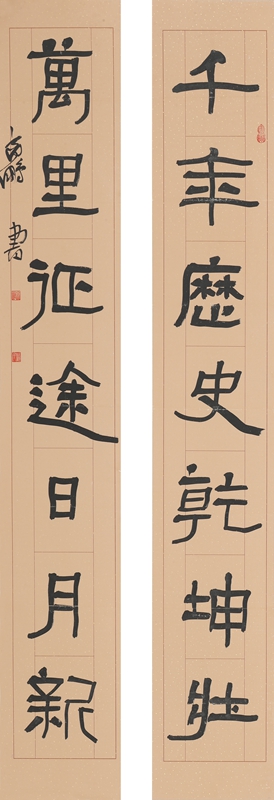 千年歷史乾坤壯
萬里征途日月新
書